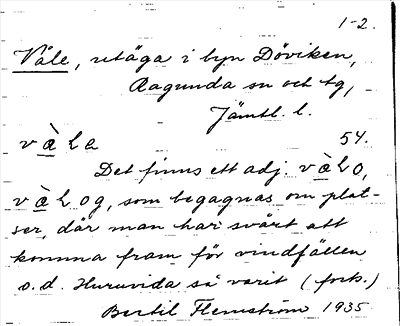 1-2.
Våle, utäga i byn Döviken,
Ragunda sn och tg,
Jämtl. l.
v à l e 54.
Det finns ett adj. v à l o,
v à l o g, som begagnas om plat-
ser, där man har svårt att
komma fram för vindfällen
o.d. Huruvida så varit (forts.)
Bertil Flemström 1935